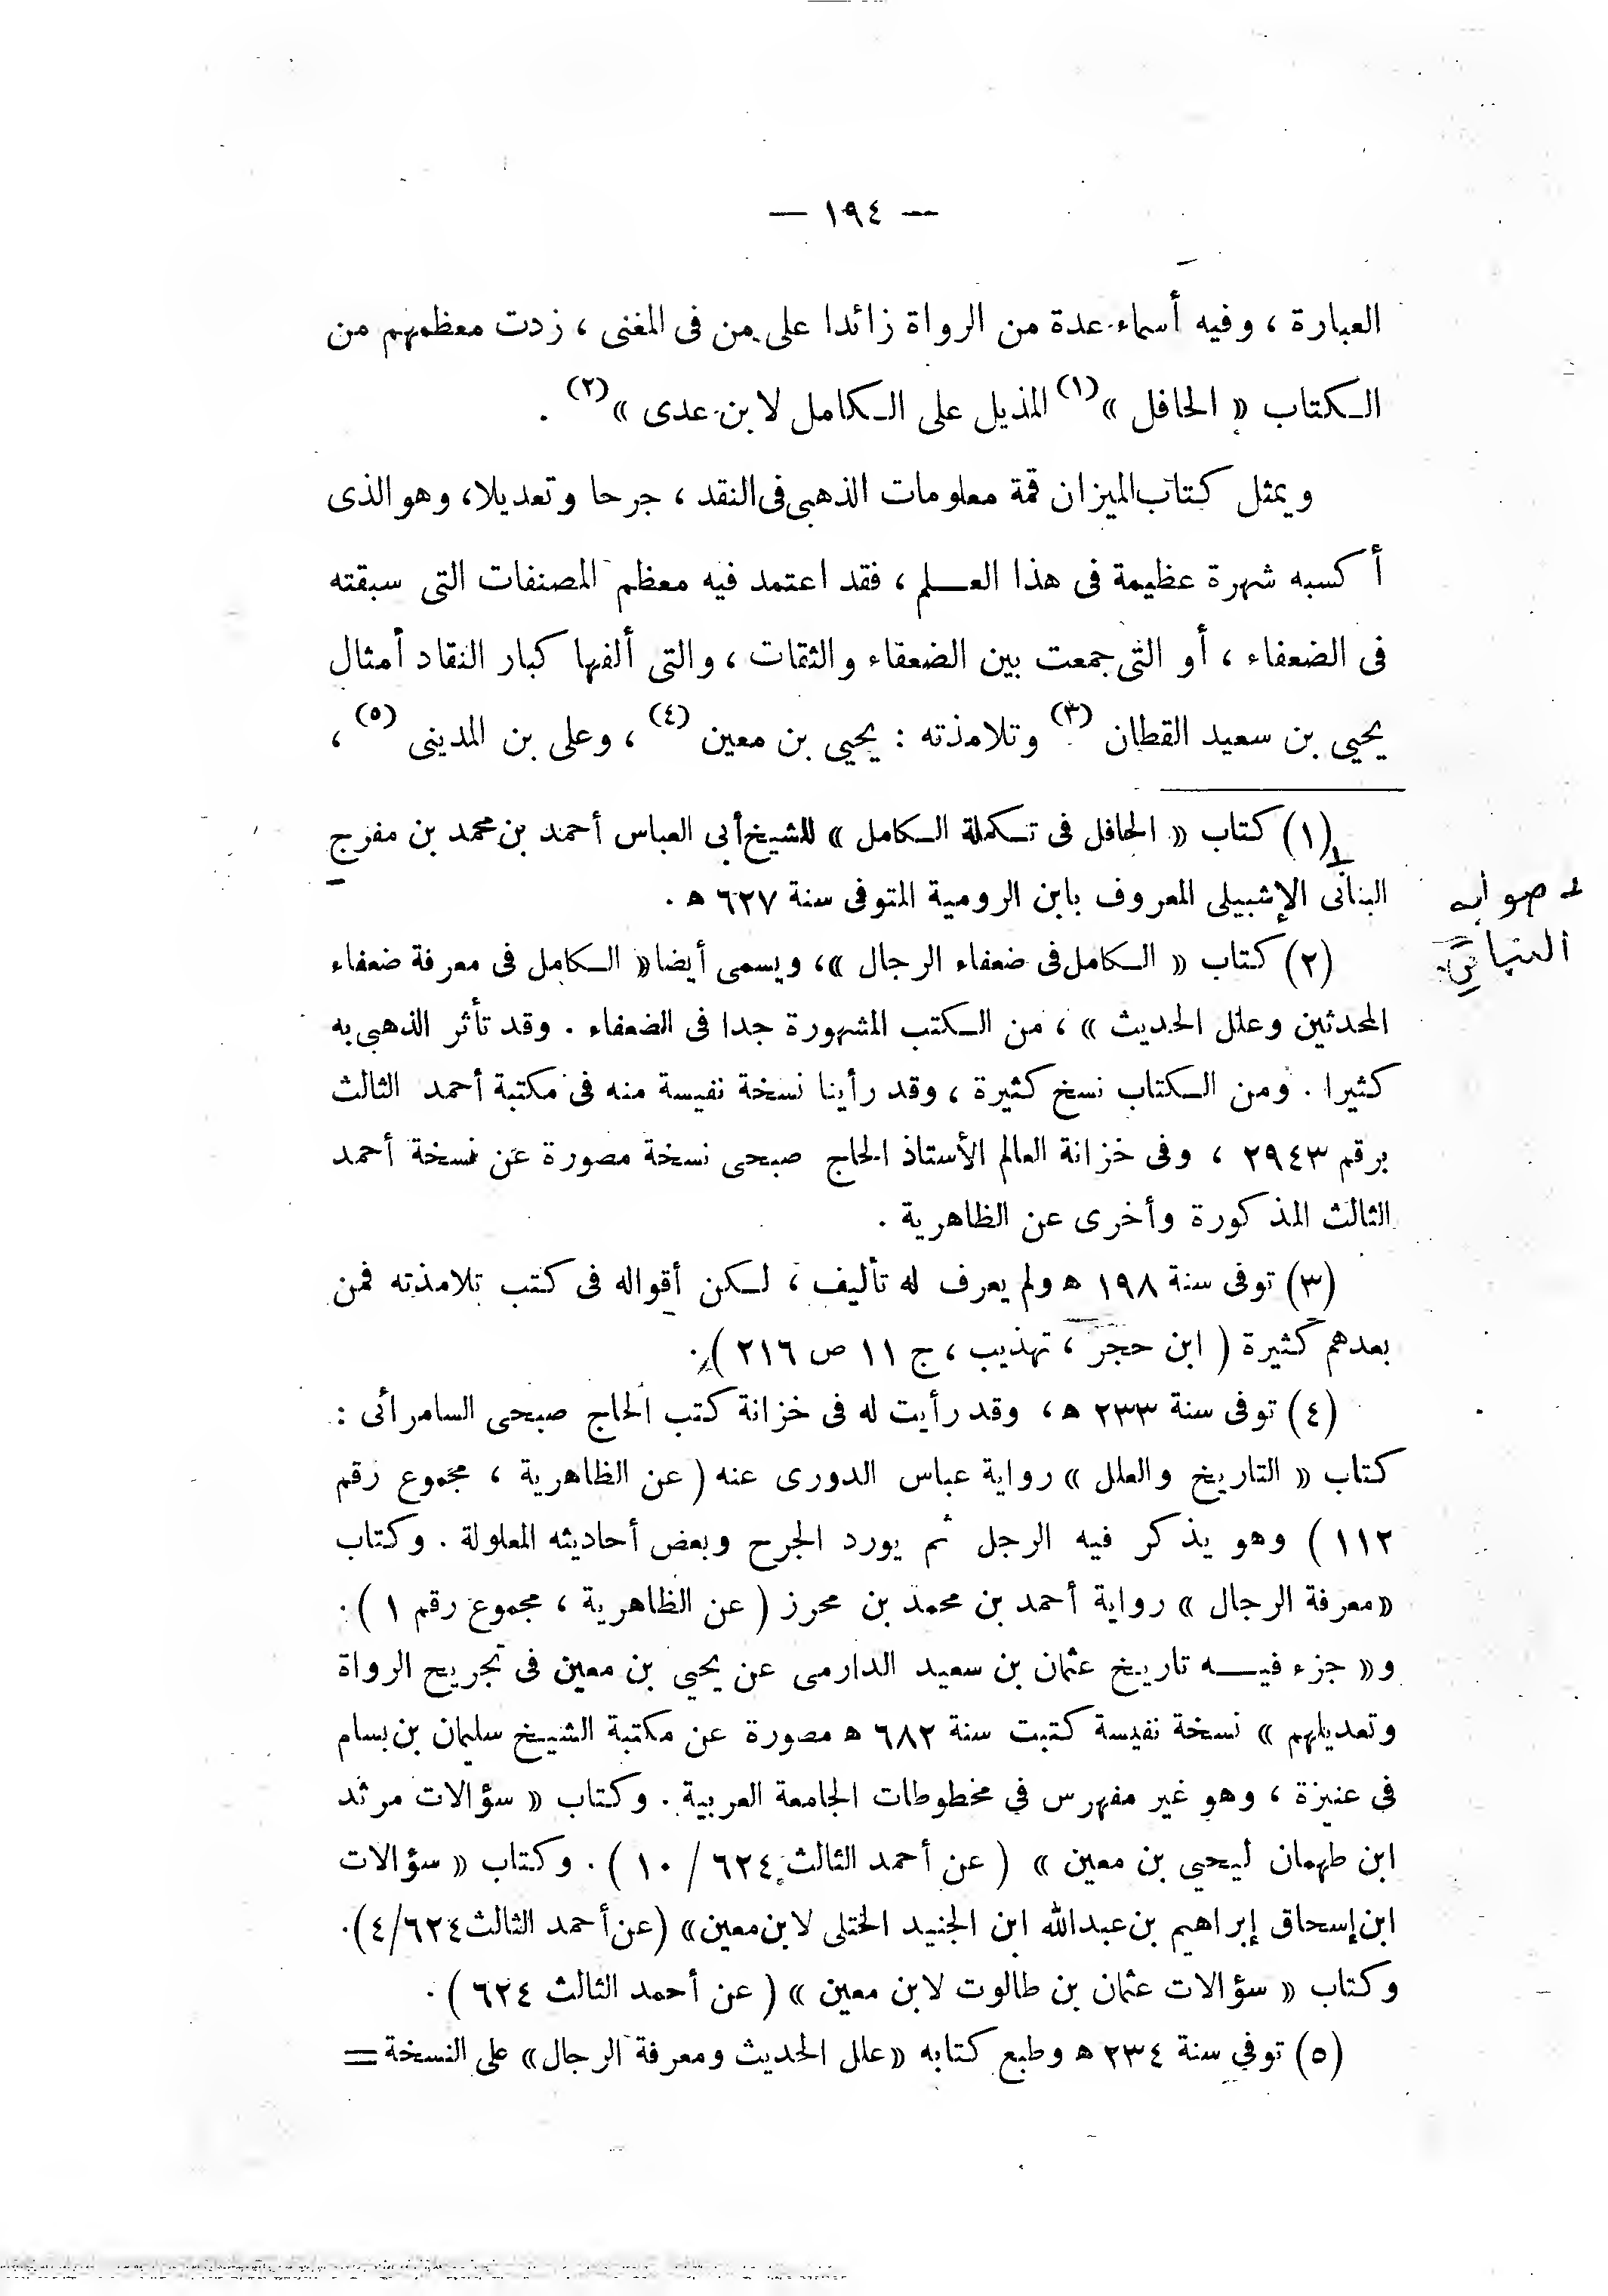 — ١٩٤ —
العبارة ، وفيه أسماء عدة من الرواة زائدا على من فى المغنى ، زدت معظمهم من
الكتاب « الحافل »(١) المذيل على الكامل لابن عدى »(٢) .
ويمثل كتاب الميزان قمة معلومات الذهبى فى النقد ، جرحا وتعديلا، وهو الذى
أكسبه شهرة عظيمة فى هذا العلم ، فقد اعتمد فيه معظم المصنفات التى سبقته
فى الضعفاء ، أو التى جمعت بين الضعقاء والثقات ، والتى ألفها كبار النقاد أمثال
يحيى بن سعيد القطان (٣) وتلامذته : يحيى بن معين (٤) ، وعلى بن المدينى (٥) ،
(١) كتاب « الحافل فى تكملة الكامل » للشيخ أبى العباس أحمد بن محمد بن مفرج
البنانى الإشبيلى المعروف بابن الرومية المتوفى سنة ٦٢٧ ه .
صوابه
النباتي
(٢) كتاب « الكامل فى ضعفاء الرجال »، ويسمى أيضا « الكامل فى معرفة ضعفاء
المحدثين وعلل الحديث » ، من الكتب المشهورة جدا فى الضعفاء . وقد تأثر الذهبى به
كثيرا . ومن الكتاب نسخ كثيرة ، وقد رأينا نسخة نفيسة منه فى مكتبة أحمد الثالث
برقم ٢٩٤٣ ، وفى خزانة العالم الأستاذ الحاج صبحى نسخة مصورة عن نسخة أحمد
الثالث المذكورة وأخرى عن الظاهرية .
(٣) توفى سنة ١٩٨ ه ولم يعرف له تأليف ، لكن أقواله فى كتب تلامذته فمن
بعدهم كثيرة ( ابن حجر ، تهذيب ، ج ١١ ص ٢١٦ ).
(٤) توفى سنة ٢٣٣ ه ، وقد رأيت له فى خزانة كتب الحاج صبحى السامرائى :
كتاب « التاريخ والعلل » رواية عباس الدورى عنه ( عن الظاهرية ، مجموع رقم
١١٢ ) وهو يذكر فيه الرجل ثم يورد الجرح وبعض أحاديثه المعلولة . وكتاب
« معرفة الرجال » رواية أحمد بن محمد بن محرز ( عن الظاهرية ، مجموع رقم ١ ) .
و« جزء فيه تاريخ عثمان بن سعيد الدارمى عن يحيي بن معين فى تجريح الرواة
وتعديلهم » نسخة نفيسة كتبت سنة ٦٨٢ ه مصورة عن مكتبة الشيخ سليمان بن بسام
فى عنيزة ، وهو غير مفهرس في مخطوطات الجامعة العربية . وكتاب « سؤالات مرثد
ابن طهمان ليحيي بن معين » ( عن أحمد الثالث ٦٢٤ / ١٠ ) . وكتاب « سؤالات
ابن إسحاق إبراهيم بن عبدالله ابن الجنيد الختلى لابن معين» (عن أحمد الثالث ٦٢٤/٤).
وكتاب « سؤالات عثمان بن طالوت لابن معين » ( عن أحمد الثالث ٦٢٤ ) .
(٥) توفي سنة ٢٣٤ ه وطبع كتابه «علل الحديث ومعرفة الرجال» على النسخة =